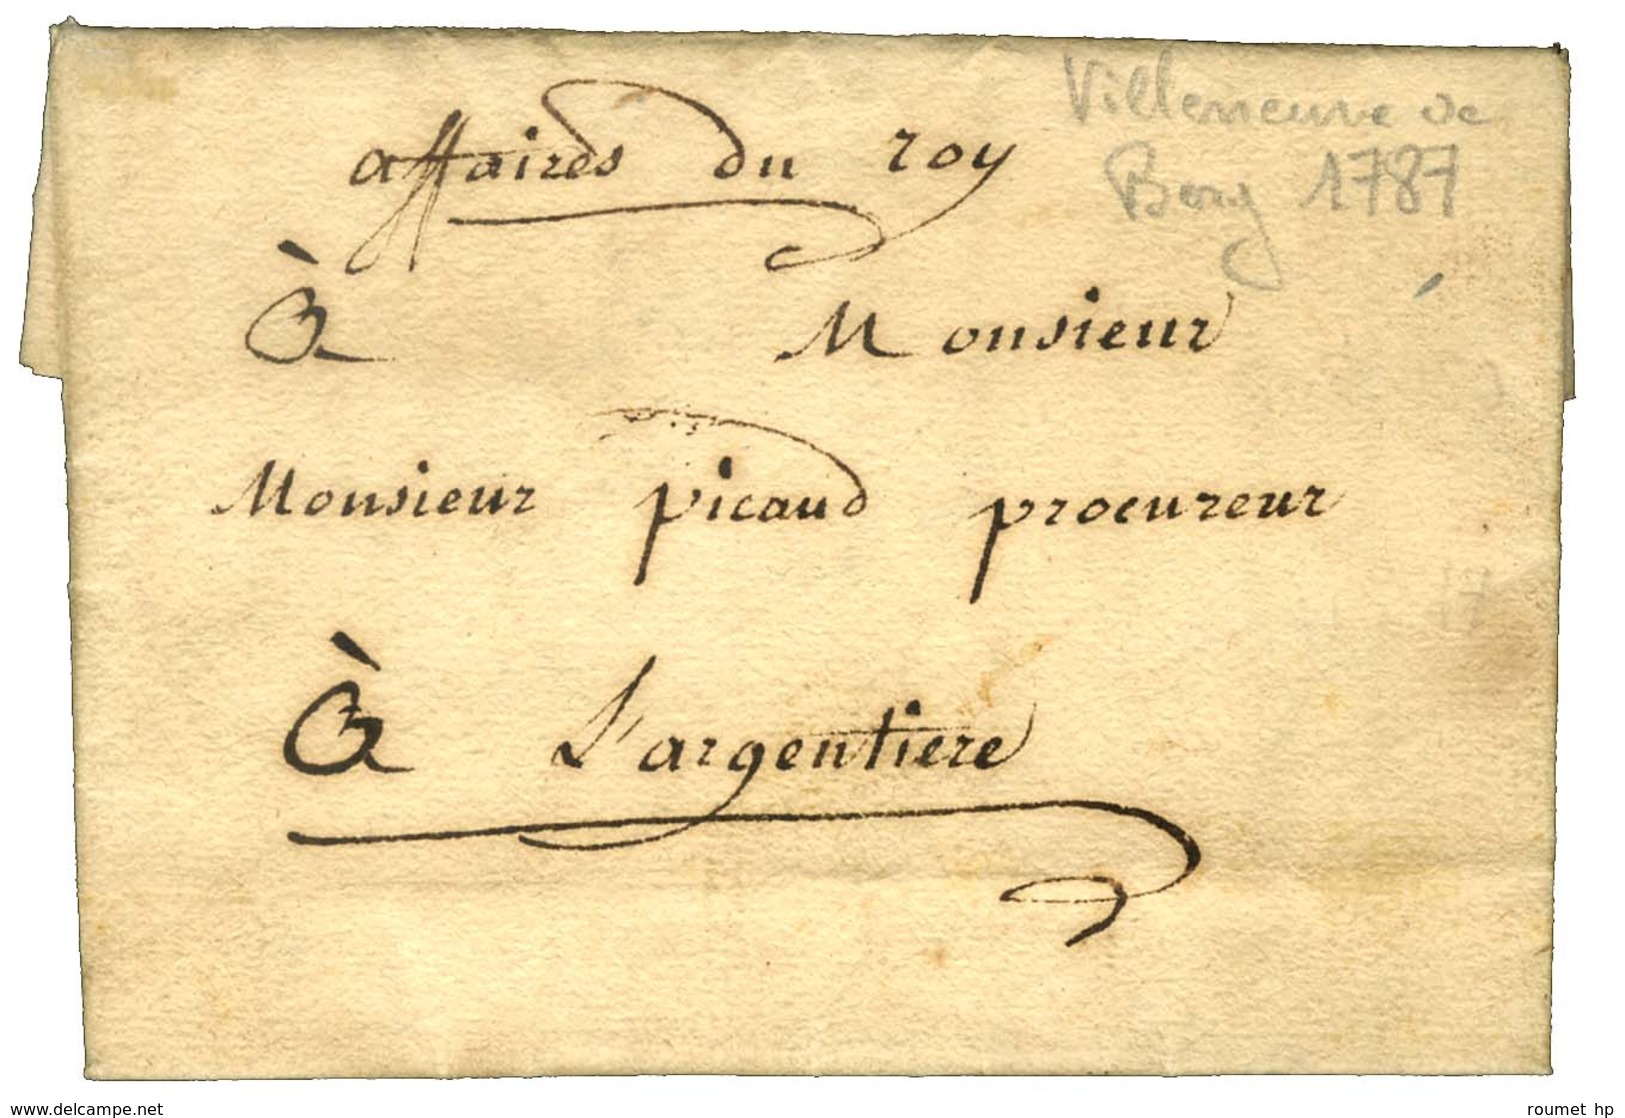 affaires du roy
Villeneuve de
Berg 1787
À Monsieur
Monsieur picaud procureur
À L'argentiere
www.delcampe.net
roumet hp